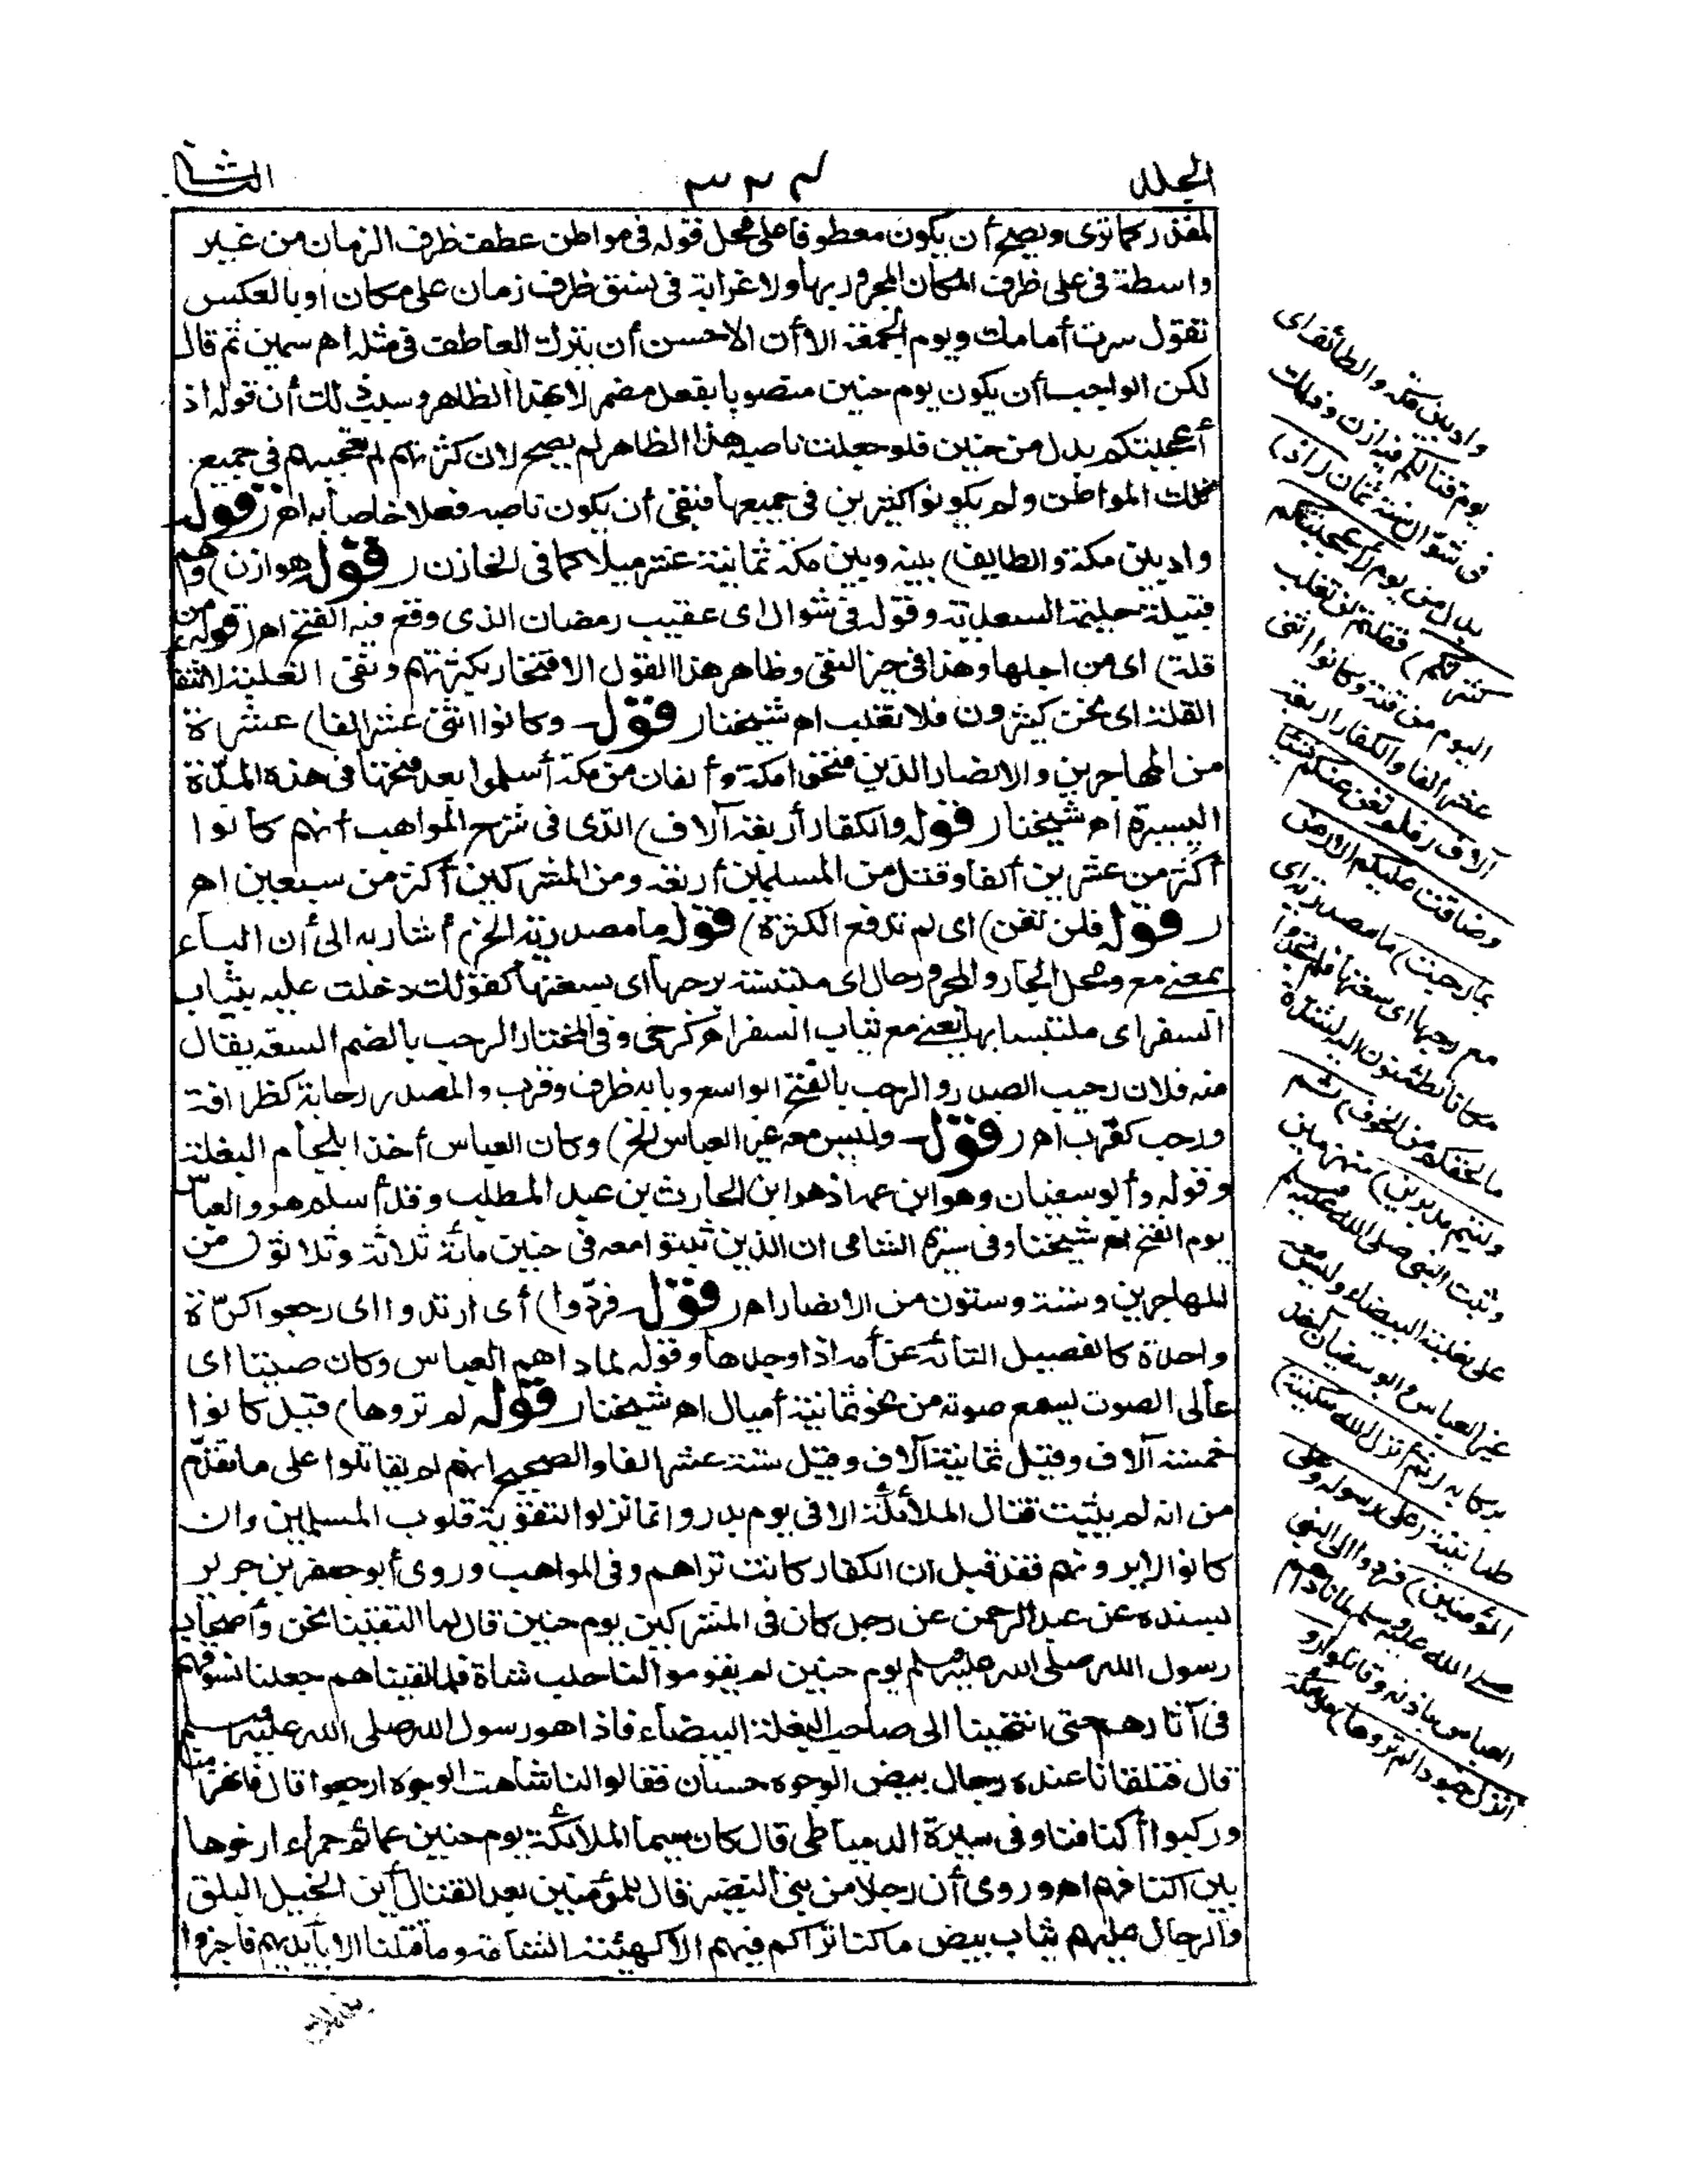 المجلد ٣٢٤ الثانى
المقدر كما ترى ويصح أن يكون معطوفا على محل قوله فى مواطن عطف ظرف الزمان من غير
واسطة فى على ظرف المكان المجرور بها ولا غرابة فى نسق ظرف زمان على مكان أو بالعكس
تقول سرت أمامك ويوم الجمعة الا أن الاحسن أن يترك العاطف فى مثله اهـ سمين ثم قال
لكن الواجب أن يكون يوم حنين منصوبا بفعل مضمر لا بهذا الظاهر وسبب ذلك أن قوله اذ
أعجبتكم بدل من حنين فلو جعلت ناصبه هذا الظاهر لم يصح لان كثرتهم لم تعجبهم فى جميع
تلك المواطن ولم يكونوا كثيرين فى جميعها فبقى أن يكون ناصبه فعلا خاصا به اهـ (قوله
واد بين مكة والطايف) بينه وبين مكة ثمانية عشر ميلا كما فى الخازن (قوله هوازن) وهم
قبيلة حليمة السعدية وقوله فى شوال اى عقيب رمضان الذى وقع فيه الفتح اهـ (قوله من
قلة) اى من اجلها وهذا فى حيز النفى وظاهر هذا القول الافتخار بكثرتهم ونفى الغلبة لانتفا
القلة اى نحن كثيرون فلا نغلب اهـ شيخنا (قوله وكانوا اثنى عشر الفا) عشرة
من المهاجرين والانصار الذين فتحوا مكة وألفان من مكة أسلموا بعد فتحها فى هذه المدّة
اليسيرة اهـ شيخنا (قوله والكفار أربعة آلاف) الذى فى شرح المواهب أنهم كانوا
أكثر من عشرين ألفا وقتل من المسلمين أربعة ومن المشركين أكثر من سبعين اهـ
(قوله فلن تغن) اى لم تدفع الكثرة) قوله ما مصدرية الخ) أشار به الى أن الباء
بمعنى مع ومحل الجار والمجرور حال اى ملتبسة برحبها اى بسعتها كقولك دخلت عليه بثياب
السفر اى ملتبسا بها يعنى مع ثياب السفر اهـ كرخى وفى المختار الرحب بالضم السعة يقال
منه فلان رحيب الصدر والرحب بالفتح الواسع وبابه ظرف وقرب والمصدر رحابة كظرافة
ورحب كقرب اهـ (قوله وليس معه غير العباس الخ) وكان العباس أخذا بلجام البغلة
وقوله وأبو سفيان وهو ابن عمه اذ هو ابن الحارث بن عبد المطلب وقد أسلم هو والعباس
يوم الفتح اهـ شيخنا وفى سيرة الشامى ان الذين ثبتوا معه فى حنين مائة ثلاثة وثلاثون من
المهاجرين وستة وستون من الانصار اهـ (قوله فردّوا) أى ارتدوا اى رجعوا كرّة
واحدة كالفصيل التائه عن أمه اذا وجدها وقوله لما ناداهم العباس وكان صيتا اى
عالى الصوت يسمع صوته من نحو ثمانية أميال اهـ شيخنا (قوله لم تروها) قيل كانوا
خمسة آلاف وقيل ثمانية آلاف وقيل ستة عشر الفا والصحيح انهم لم يقاتلوا على ما تقدّم
من انه لم يثبت قتال الملائكة الا فى يوم بدر وانما نزلوا لتقوية قلوب المسلمين وان
كانوا لا يرونهم فقد قيل ان الكفار كانت تراهم وفى المواهب وروى أبو جعفر بن جرير
بسنده عن عبد الرحمن عن رجل كان فى المشركين يوم حنين قال لما التقينا نحن وأصحاب
رسول الله صلى الله عليه وسلم يوم حنين لم يقوموا لنا حلب شاة فلما لقيناهم جعلنا نسوقهم
فى آثارهم حتى انتهينا الى صاحب البغلة البيضاء فاذا هو رسول الله صلى الله عليه وسلم
قال فتلقانا عنده رجال بيض الوجوه حسان فقالوا لنا شاهت الوجوه ارجعوا قال فانهزمنا
وركبوا أكتافنا وفى سيرة الدمياطى قال كان سيما الملائكة يوم حنين عمائم حمراء ارخوها
بين اكتافهم اهـ وروى أن رجلا من بنى النضير قال للمؤمنين بعد القتال أين الخيل البلق
والرجال عليهم ثياب بيض ما كنا نراكم فيهم الا كهيئة الشامة وما قتلنا الا بأيديهم فاخبروا
واد بين مكة والطائف اى
يوم قتالكم فيه هوازن وذلك
فى شوّال سنة ثمان (اذ)
بدل من يوم (أعجبتكم
كثرتكم) فقلتم لن نغلب
اليوم من قلة وكانوا اثنى
عشر الفا والكفار اربعة
آلاف (فلم تغن عنكم شيئا
وضاقت عليكم الارض
بما رحبت) ما مصدرية اى
مع رحبها اى سعتها فلم تجدوا
مكانا تطمئنون اليه لشدّة
ما لحقكم من الخوف (ثم
وليتم مدبرين) منهزمين
وثبت النبى صلى الله عليه وسلم
على بغلته البيضاء وليس معه
غير العباس وابو سفيان آخذ
بركابه (ثم انزل الله سكينته)
طمانينته (على رسوله وعلى
المؤمنين) فردوا الى النبى
صلى الله عليه وسلم لما ناداهم
العباس باذنه وقاتلوا (و
انزل جنودا لم تروها) ملائكة